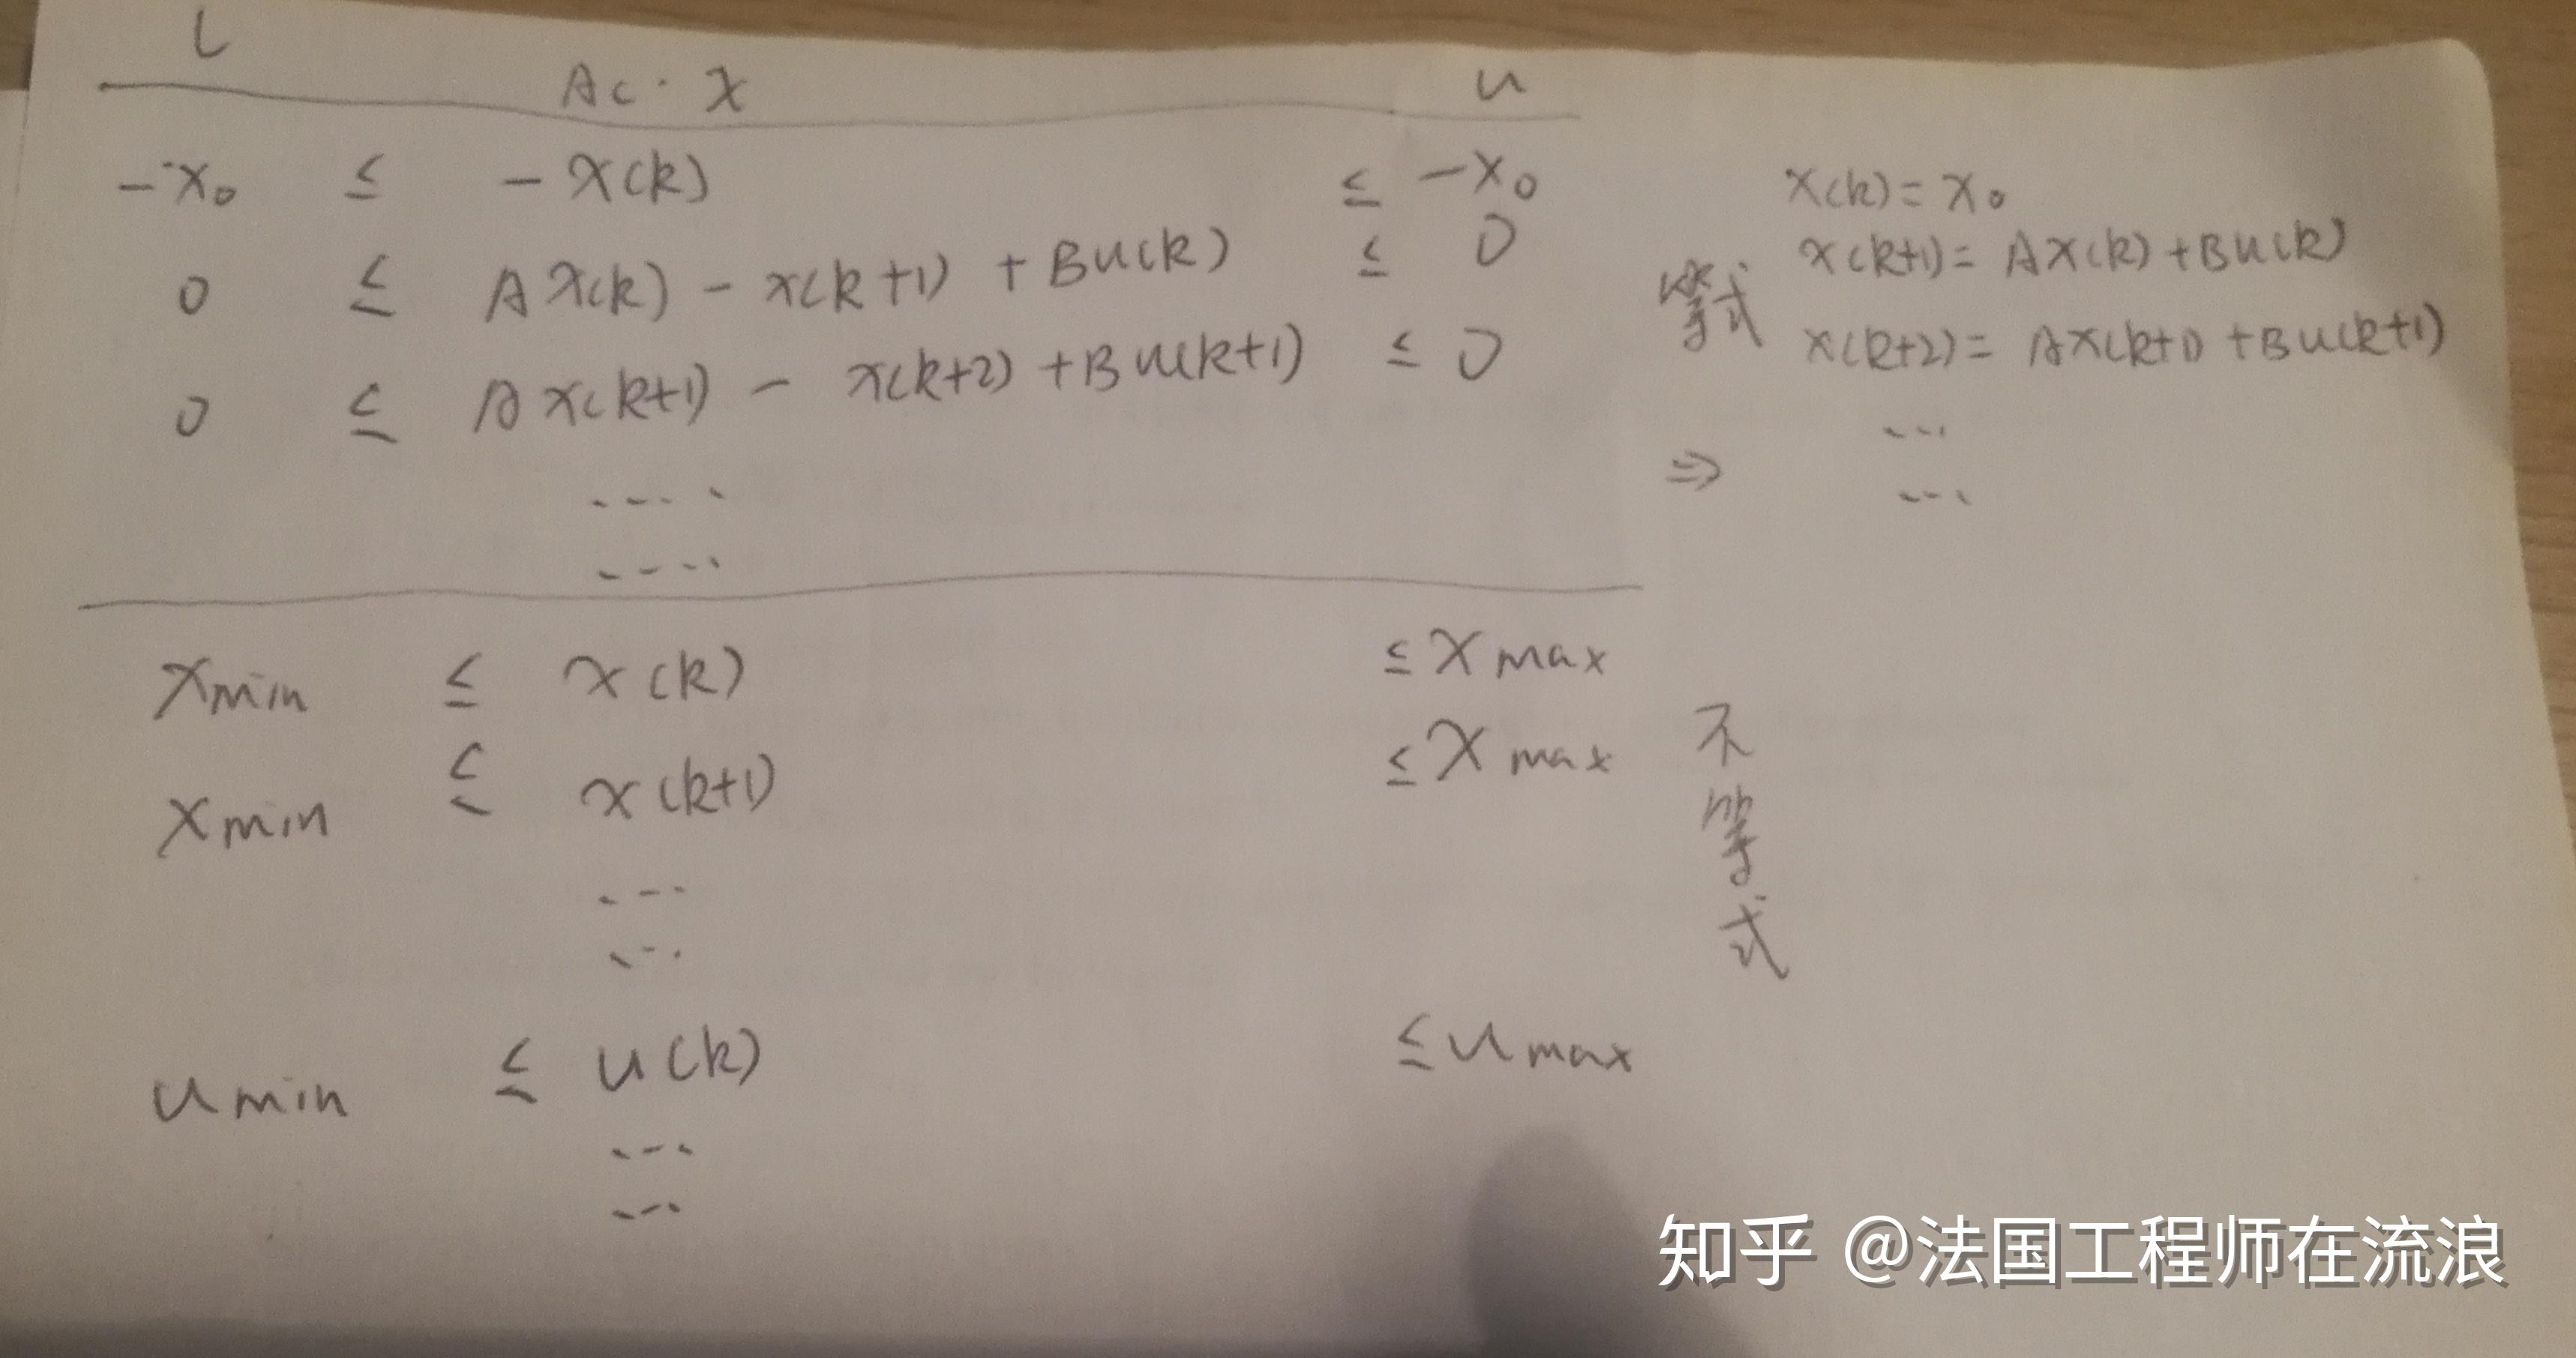 L Ac · X u
-x₀ ≤ -x(k) ≤ -x₀
0 ≤ Ax(k) - x(k+1) + Bu(k) ≤ 0
0 ≤ Ax(k+1) - x(k+2) + Bu(k+1) ≤ 0
....
....
等式
x(k) = x₀
x(k+1) = Ax(k) + Bu(k)
x(k+2) = Ax(k+1) + Bu(k+1)
⇒ ...
...
xmin ≤ x(k) ≤ xmax
xmin ≤ x(k+1) ≤ xmax
...
...
不等式
umin ≤ u(k) ≤ umax
...
...
知乎 @法国工程师在流浪